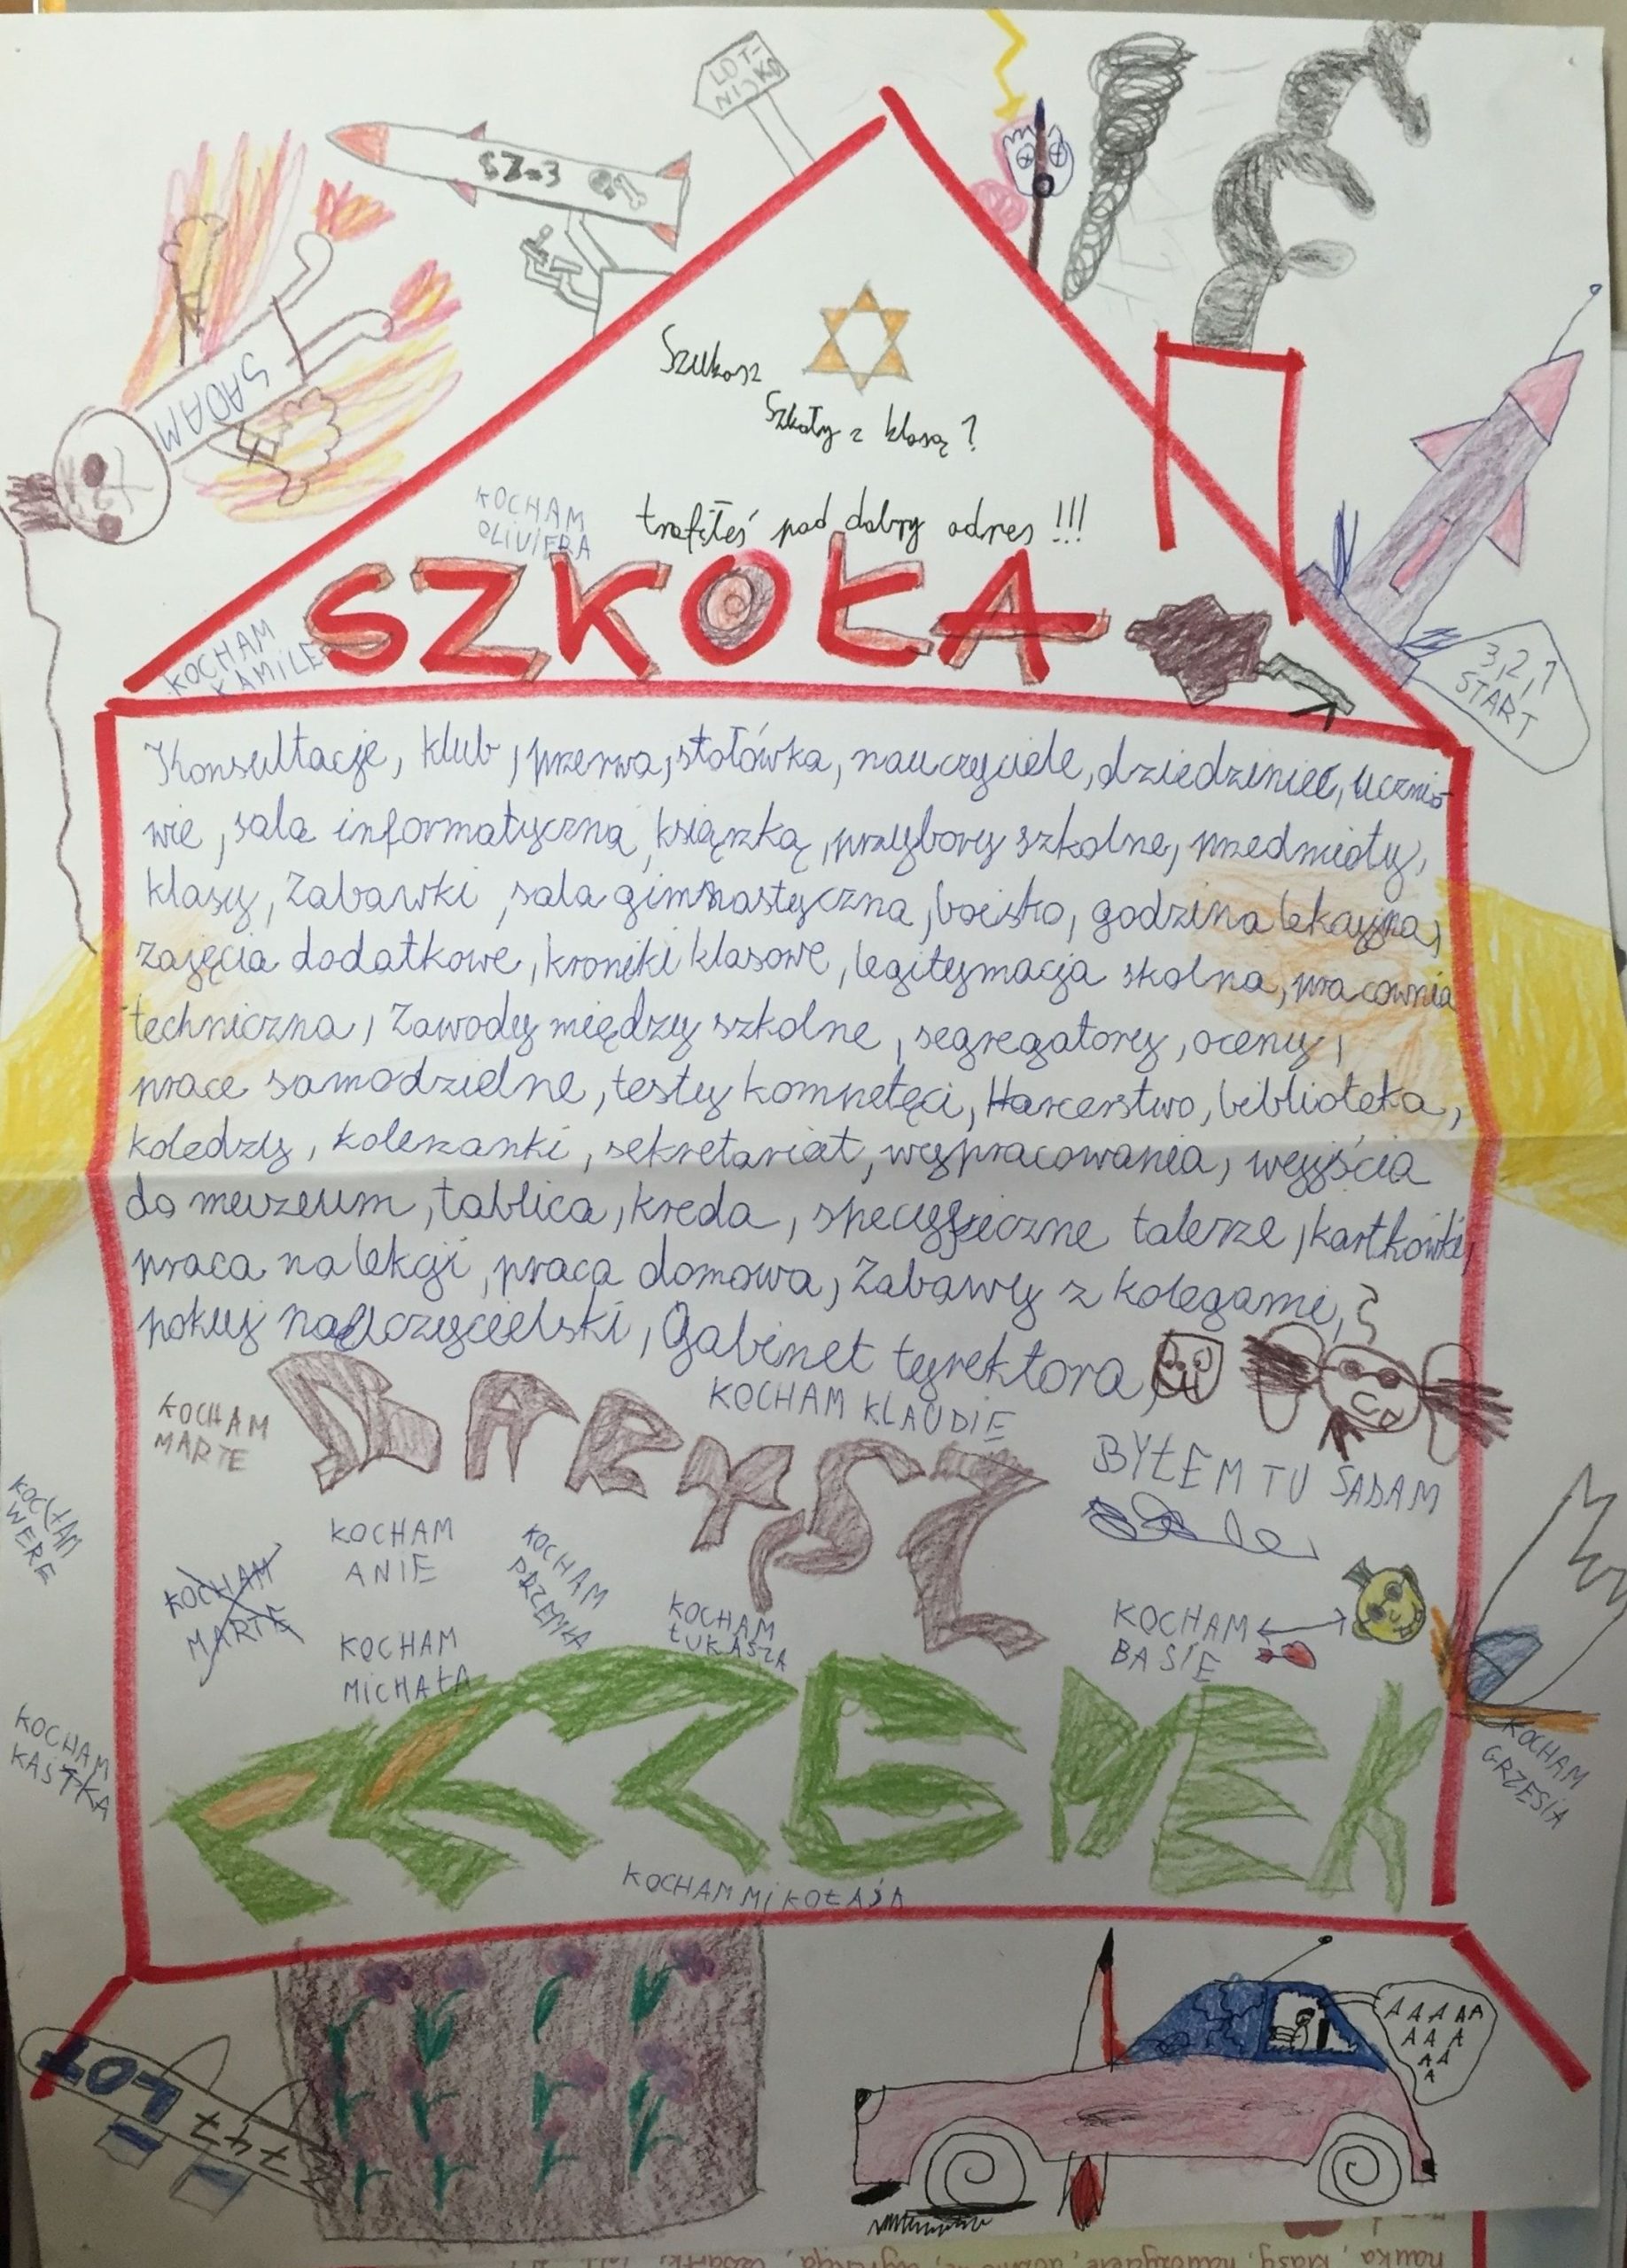 LOT-
NISKO
SZ-3
SADAM
Szukasz
Szkoły z klasą?
trafiłeś pod dobry adres!!!
KOCHAM
OLIVIERA
KOCHAM
KAMILE
SZKOŁA
3,2,1
START
Konsultacje, klub, przerwa, stołówka, nauczyciele, dziedziniec, ucznio-
wie, sala informatyczna, książką, przybory szkolne, przedmioty,
klasy, Zabawki, sala gimnastyczna, boisko, godzina lekcyjna,
zajęcia dodatkowe, kroniki klasowe, legitymacja skolna, pracownia
techniczna, Zawody między szkolne, segregatory, oceny,
prace samodzielne, testy kompetęci, Harcerstwo, biblioteka,
koledzy, koleżanki, sekretariat, wypracowania, wyjścia
do muzeum, tablica, kreda, specyficzne talerze, kartkówki,
praca na lekcji, praca domowa, Zabawy z kolegami,
pokuj nauczycielski, Gabinet tyrektora,
BARTSZ
KOCHAM
MARTE
KOCHAM KLAUDIE
BYŁEM TU SADAM
KOCHAM
WERE
KOCHAM
ANIE
KOCHAM
PRZEMKA
KOCHAM
MARTE
KOCHAM
MICHAŁA
KOCHAM
ŁUKASZA
KOCHAM
BASIE
KOCHAM
GRZESIA
KOCHAM MIKOŁAJA
LOT
747
AAAAA
AAA
AA
A